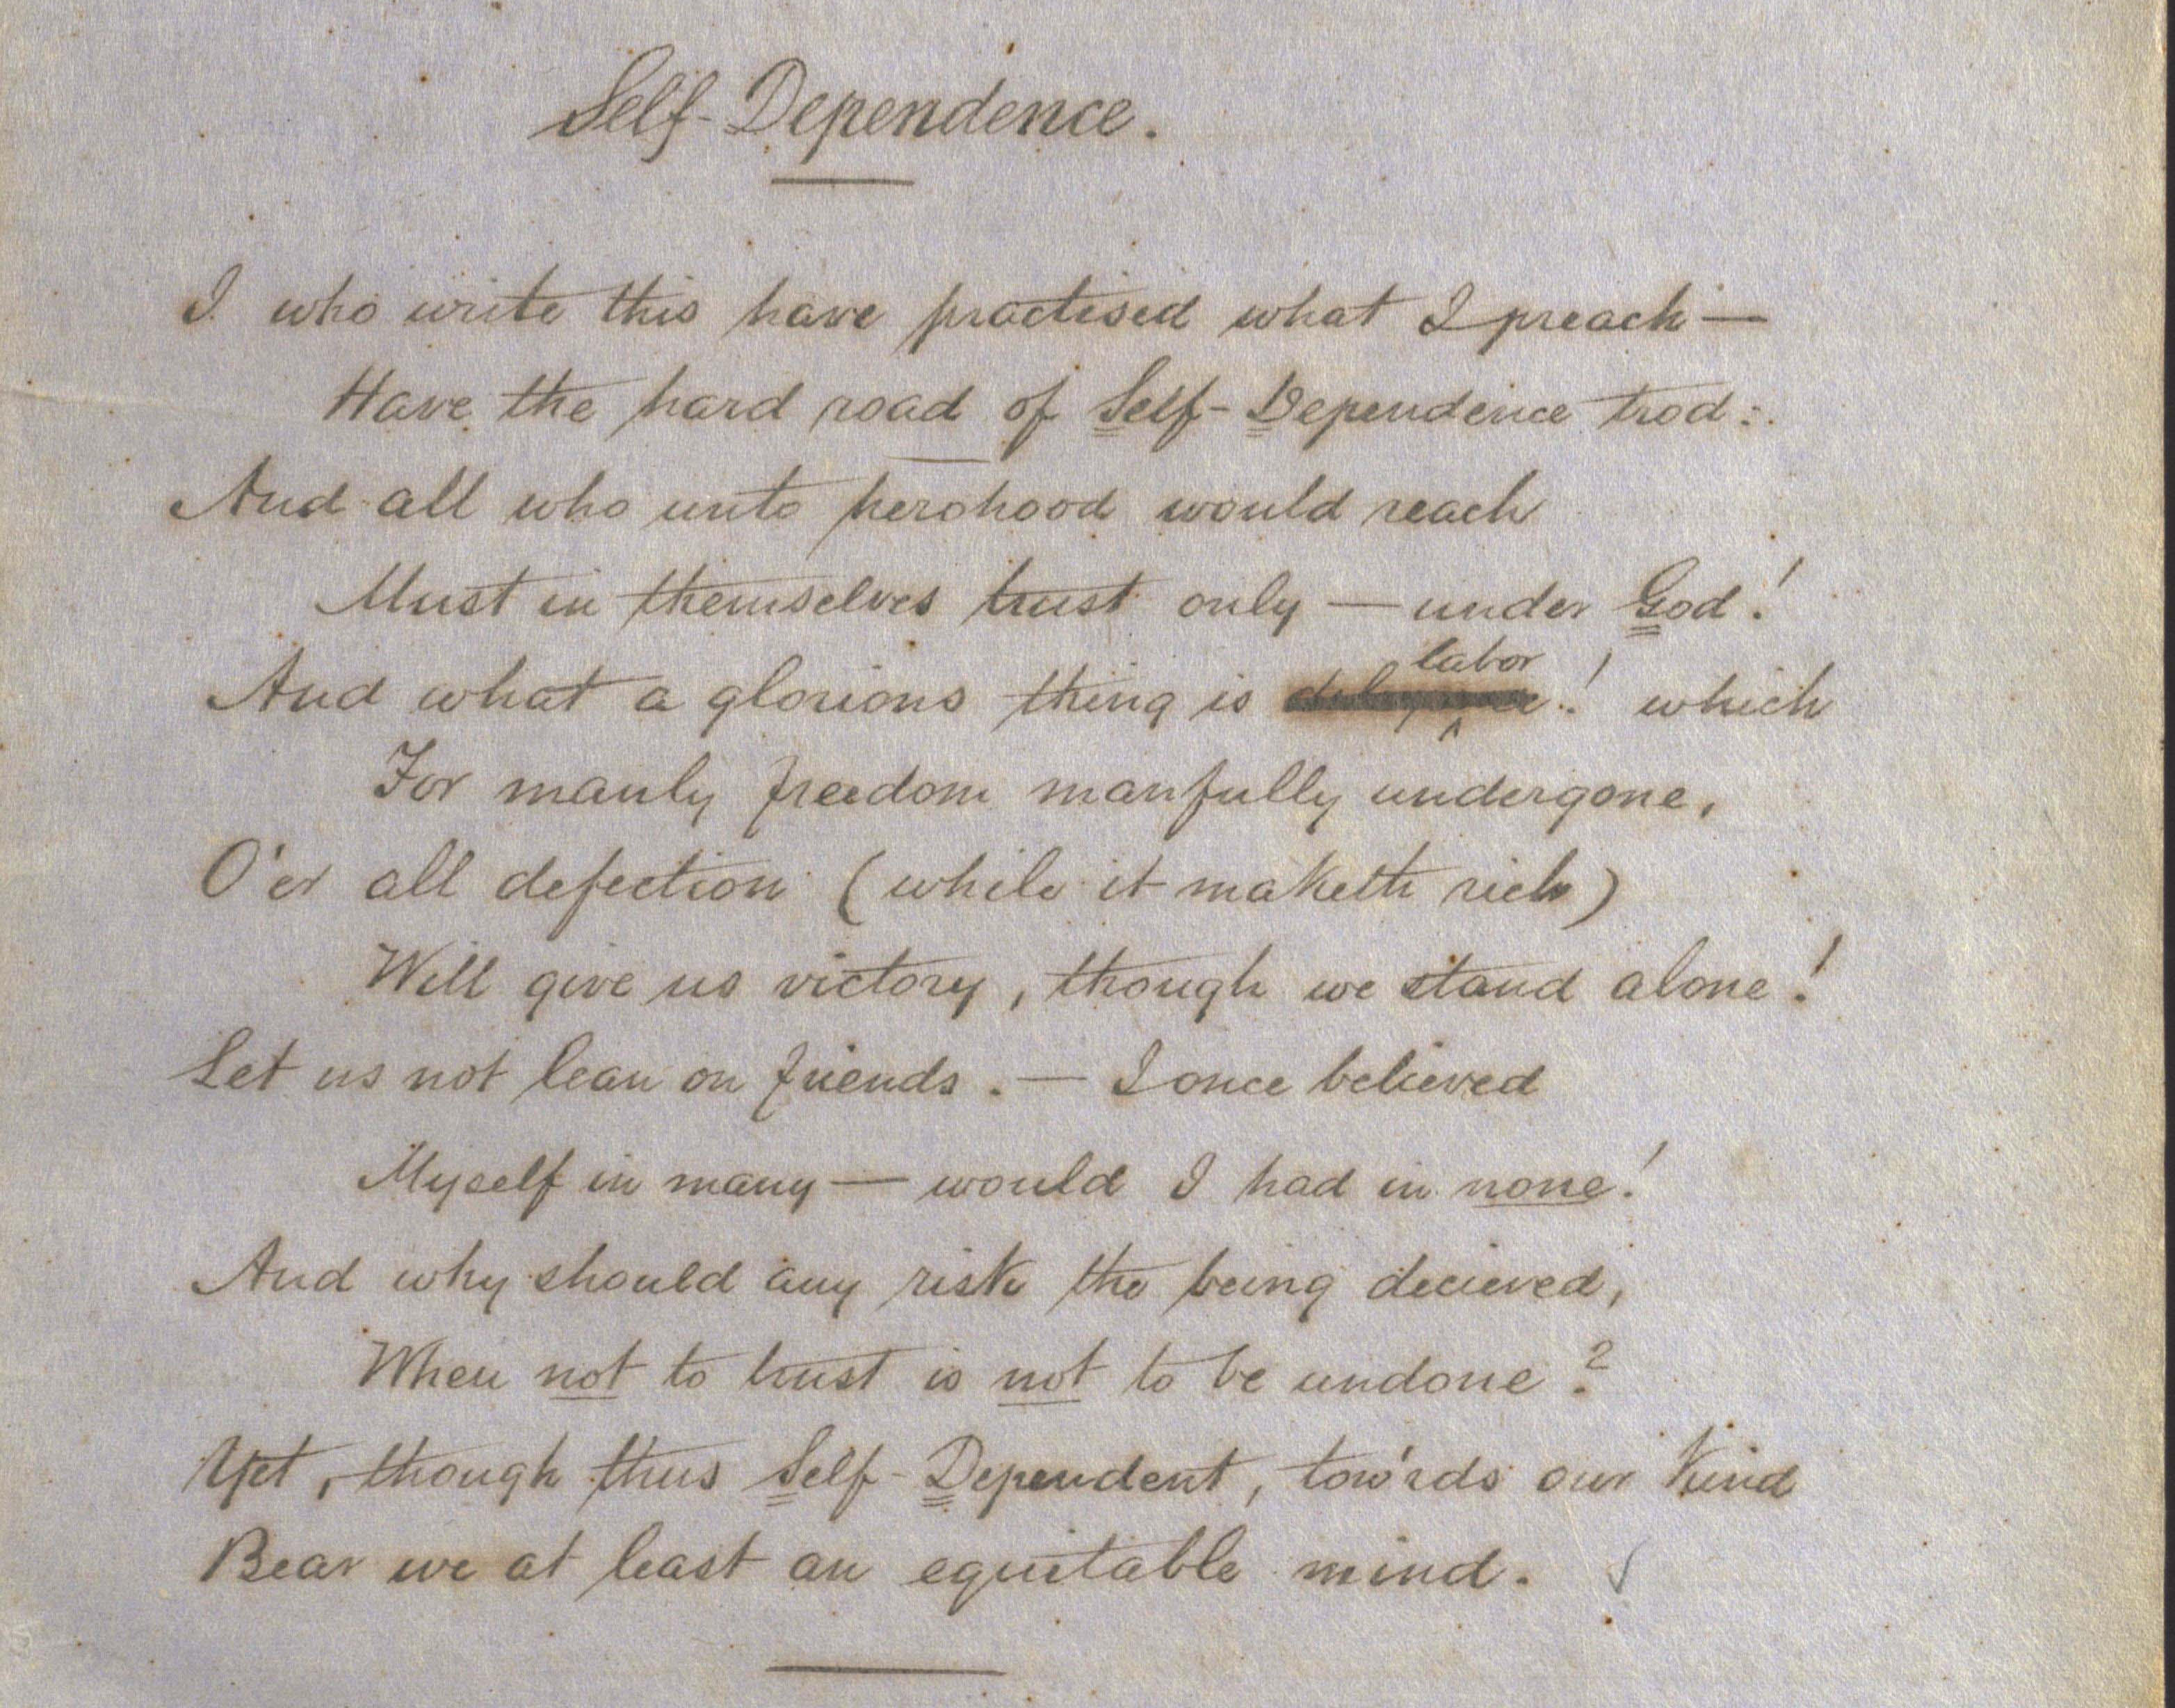 Self-Dependence.
I who write this have practised what I preach —
Have the hard road of Self-Dependence trod:
And all who unto herohood would reach
Must in themselves trust only — under God!
labor
And what a glorious thing is ! which
For manly freedom manfully undergone,
O'er all defection (while it maketh rich)
Will give us victory, though we stand alone!
Let us not lean on friends. — I once believed
Myself in many — would I had in none!
And why should any risk the being decieved,
When not to trust is not to be undone?
Yet, though thus Self-Dependent, tow'rds our kind
Bear we at least an equitable mind.